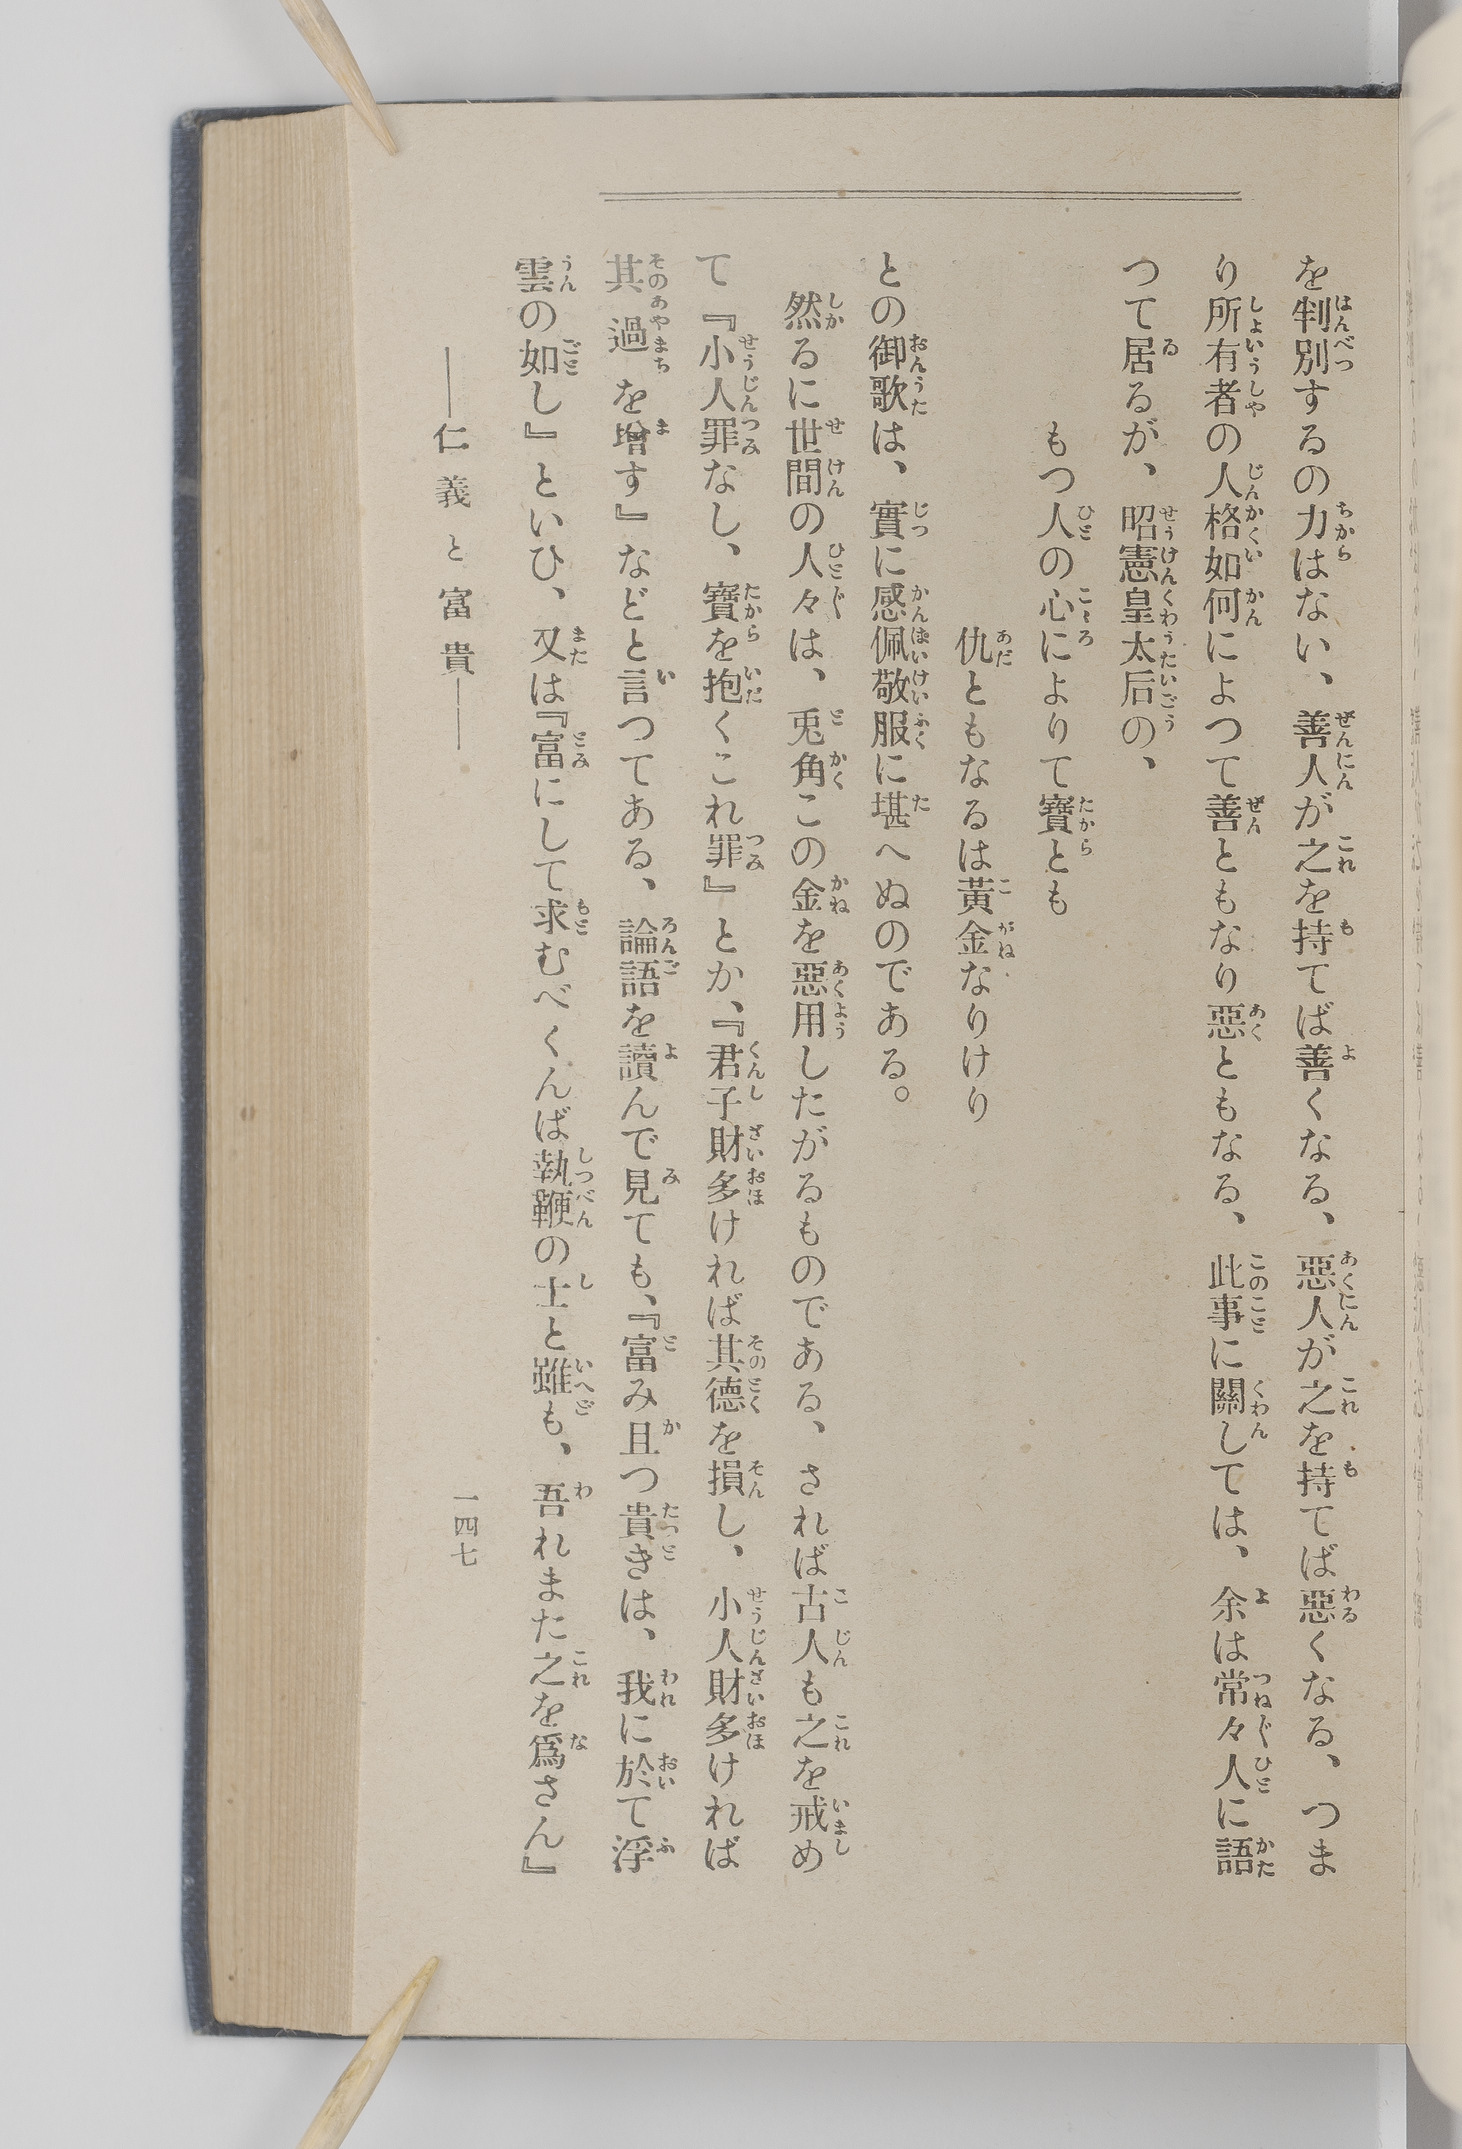 を判別するの力はない、善人が之を持てば善くなる、惡人が之を持てば惡くなる、つま
り所有者の人格如何によつて善ともなり惡ともなる、此事に關しては、余は常々人に語
つて居るが、昭憲皇太后の、
もつ人の心によりて寶とも
仇ともなるは黃金なりけり
との御歌は、實に感佩敬服に堪へぬのである。
然るに世間の人々は、兎角この金を惡用したがるものである、されば古人も之を戒め
て『小人罪なし、寶を抱くこれ罪』とか、『君子財多ければ其德を損し、小人財多ければ
其過を增す』などと言つてある、論語を讀んで見ても、『富み且つ貴きは、我に於て浮
雲の如し』といひ、又は『富にして求むべくんば執鞭の士と雖も、吾れまた之を爲さん』
――仁義と富貴――
一四七